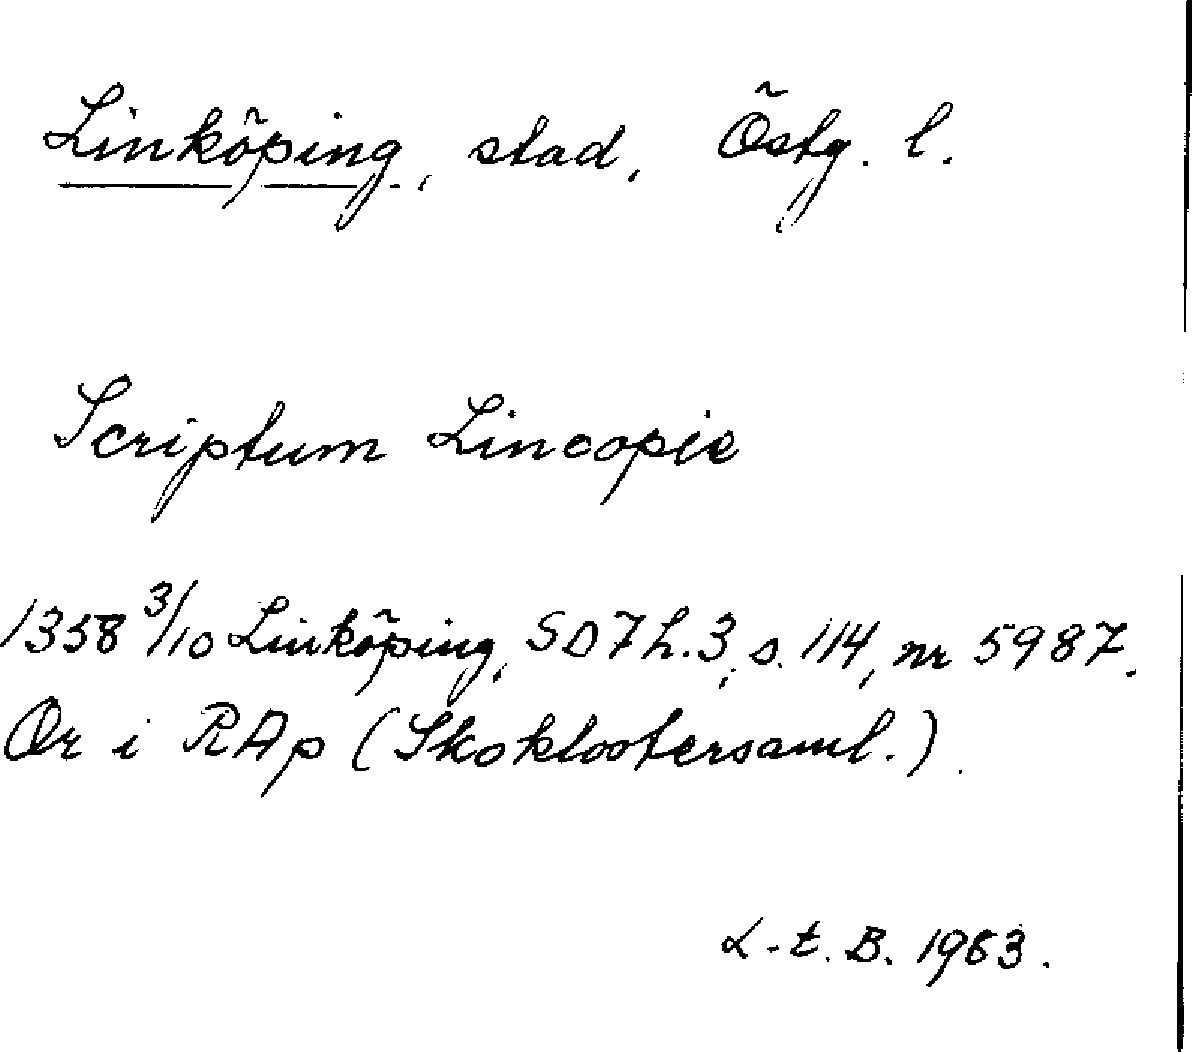 Linköping, stad, Östg. l.
Scriptum Lincopie
1358 3/10 Linköping, SD 7 h. 3, s. 114, nr 5987.
Or i RAp (Skoklostersaml.).
L-t. B. 1963.